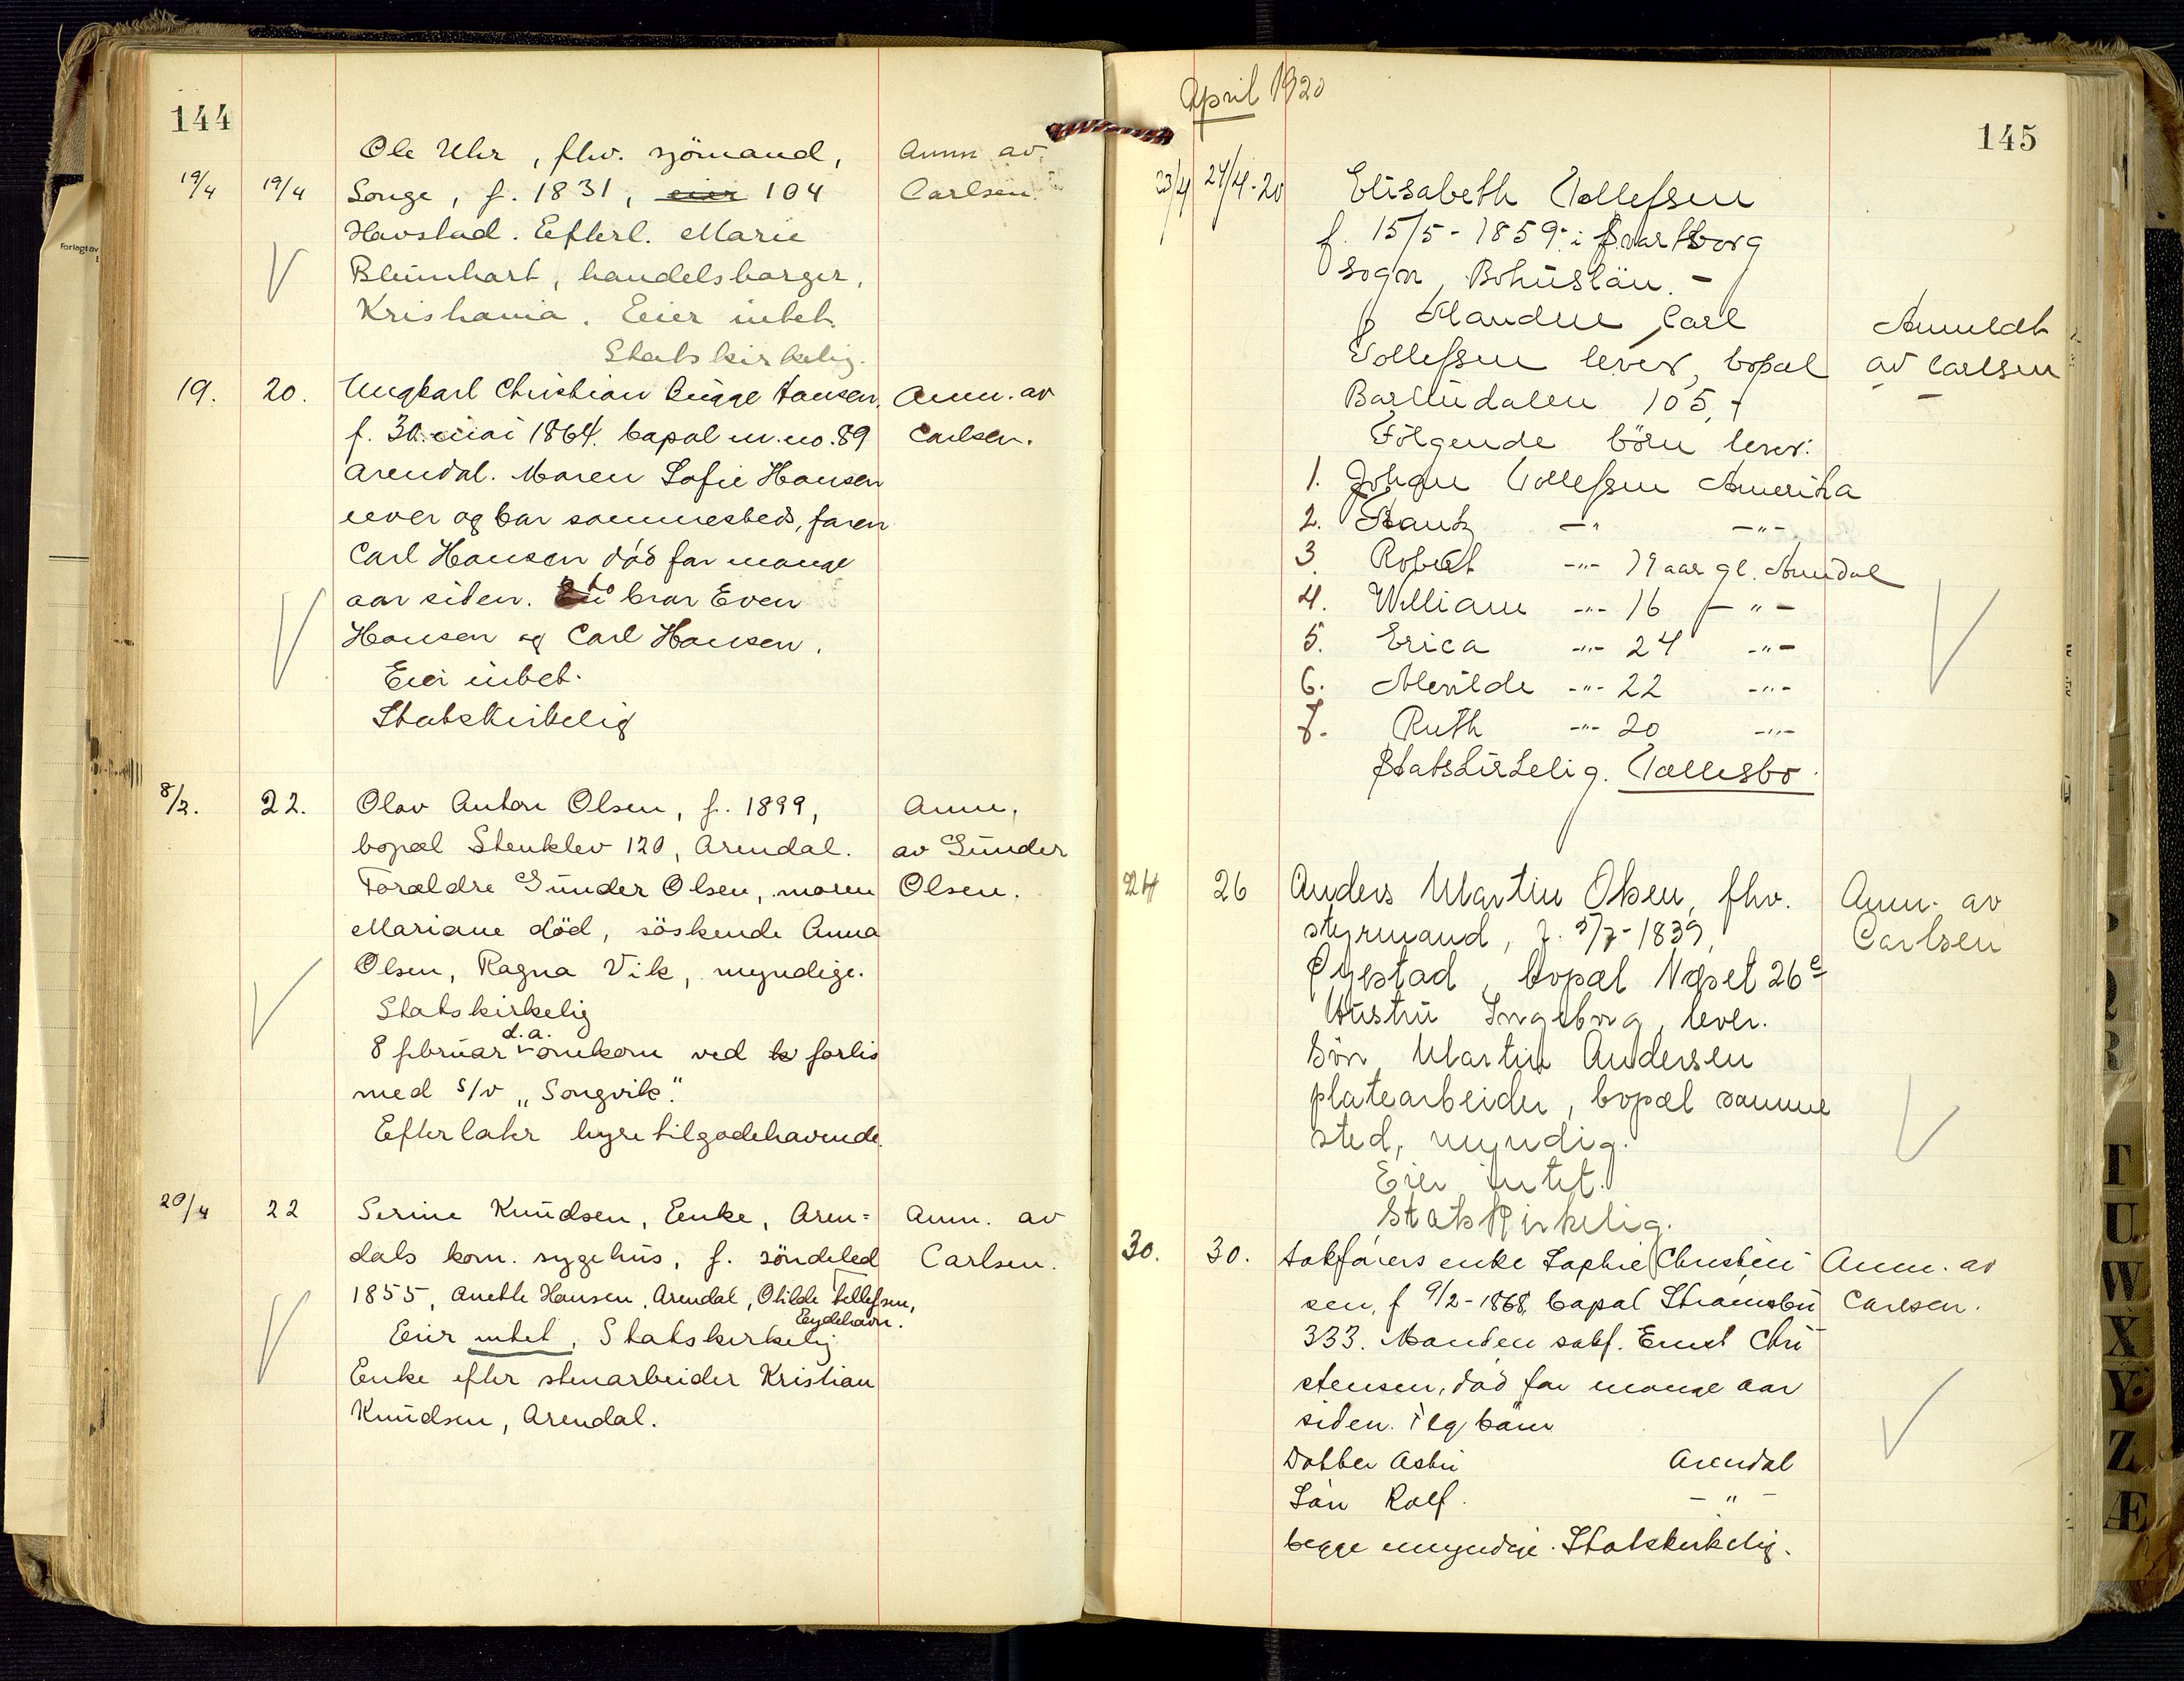 144
Ole Uhr, fhv. sjömand, Anm av
19/4 19/4 Songe, f. 1831, eier 104 Carlsen.
Havstad. Efterl. Marie
Blumhart, handelsborger,
Kristiania. Eier intet.
Statskirkelig.
19. 20. Ungkarl Christian Bugge Hansen, Anm. av
f. 30. mai 1864. bopæl m. no. 89 Carlsen.
Arendal. Moren Sofie Hansen
lever og bor sammesteds, faren
Carl Hansen död for mange
aar siden. to bror Even
Hansen og Carl Hansen.
Eier intet.
Statskirkelig
8/2. 22. Olav Anton Olsen, f. 1899, Anm.
bopæl Stenklev 120, Arendal. av Gunder
Forældre Gunder Olsen, moren Olsen.
Mariane död, söskende Anna
Olsen, Ragna Vik, myndige.
Statskirkelig
d.a.
8 februar omkom ved forlis
med s/v „Songvik".
Efterlater hyretilgodehavende.
20/4 22 Serine Knudsen, Enke, Aren= Anm. av
dals kom. sygehus, f. söndeled Carlsen.
1855, Anette Hansen, Arendal, Otilde Tellefsen,
Eydehavn.
Eier intet, Statskirkelig
Enke efter stenarbeider Kristian
Knudsen, Arendal.
April 1920
145
23/4 24/4-20 Elisabeth Tollefsen
f. 15/5-1859 i Svartborg
sogn, Bohuslän. -
Manden Carl Anmeldt
Tollefsen lever, bopæl av Carlsen
Barbudalen 105, -
Følgende börn lever:
1. Johan Tollefsen Amerika
2. Frantz -"- -"-
3. Robert -"- 19 aar gl. Arendal
4. William -"- 16 - " -
5. Erica -"- 24 -"-
6. Alvilde -"- 22 -"-
7. Ruth -"- 20 -"-
Statskirkelig. Tollesbo.
24 26 Anders Martin Olsen, fhv. Anm. av
styrmand, f. 5/7-1839, Carlsen
Øyestad, bopæl Næset 26c
Hustru Ingeborg, lever.
Sön Martin Andersen
platearbeider, bopæl samme
sted, myndig.
Eier intet.
Statskirkelig.
30. 30. Sakförers enke Sophie Christen Anm. av
sen, f 9/2-1868, bopæl Strömsbu Carlsen.
333. Manden sakf. Ernst Chri
stensen, död for mange aar
siden. börn
Datter Arendal
Sön Rolf. - " -
begge umyndige. Statskirkelig.